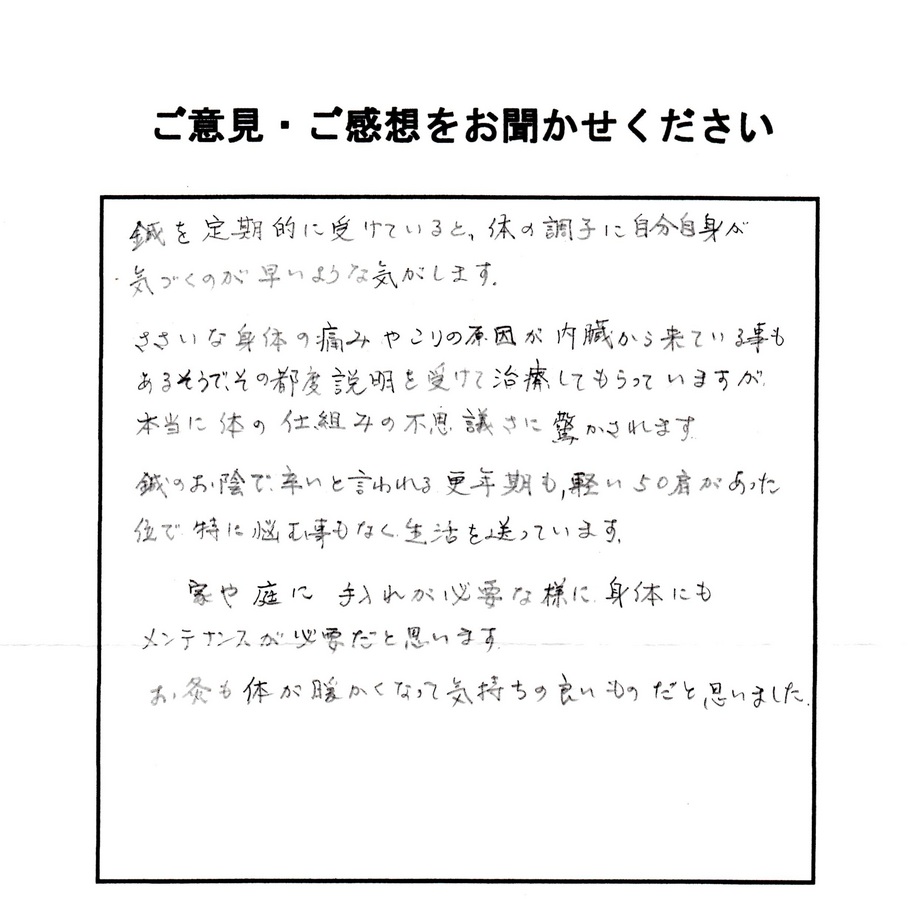 ご意見・ご感想をお聞かせください
鍼を定期的に受けていると、体の調子に自分自身が
気づくのが早いような気がします。
ささいな身体の痛みやこりの原因が内臓から来ている事も
あるそうで、その都度説明を受けて治療してもらっていますが、
本当に体の仕組みの不思議さに驚かされます。
鍼のお陰で、辛いと言われる更年期も、軽い50肩があった
位で特に悩む事もなく生活を送っています。
家や庭に手入れが必要な様に身体にも
メンテナンスが必要だと思います。
お灸も体が暖かくなって気持ちの良いものだと思いました。